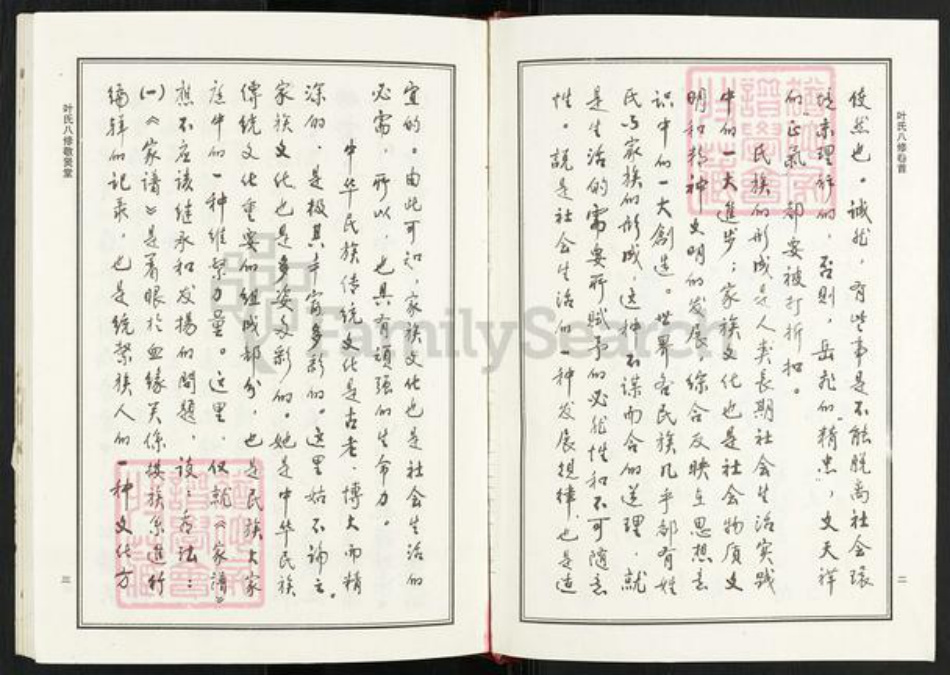 叶氏八修卷首
使然也。诚然，有些事是不能脱离社会环
境来理解的，否则，岳飞的"精忠"，文天祥
的"正气"都要被打折扣。
民族的形成是人类长期社会生活实践
中的一大進步；家族文化也是社会物质文
明和精神文明的发展综合反映在思想意
识中的一大創造。世界各民族几乎都有姓
氏与家族的形成，这种不谋而合的道理，就
是生活的需要所赋予的必然性和不可随意
性。説是社会生活的一种发展規律，也是适
二
宜的。由此可知，家族文化也是社会生活的
必需，所以，也具有顽强的生命力。
中华民族传统文化是古老、博大而精
深的，是极其丰富多彩的。这里姑不論之。
家族文化也是多姿多彩的。她是中华民族
傳统文化重要的组成部分，也是民族大家
庭中的一种维繫力量。这里，仅就《家譜》
應不應该继承和发揚的問題，談談看法：
(一)《家谱》是着眼於血缘关係按族系進行
编辑的记录，也是统繫族人的一种文化方
叶氏八修敬爱堂
三
FamilySearch